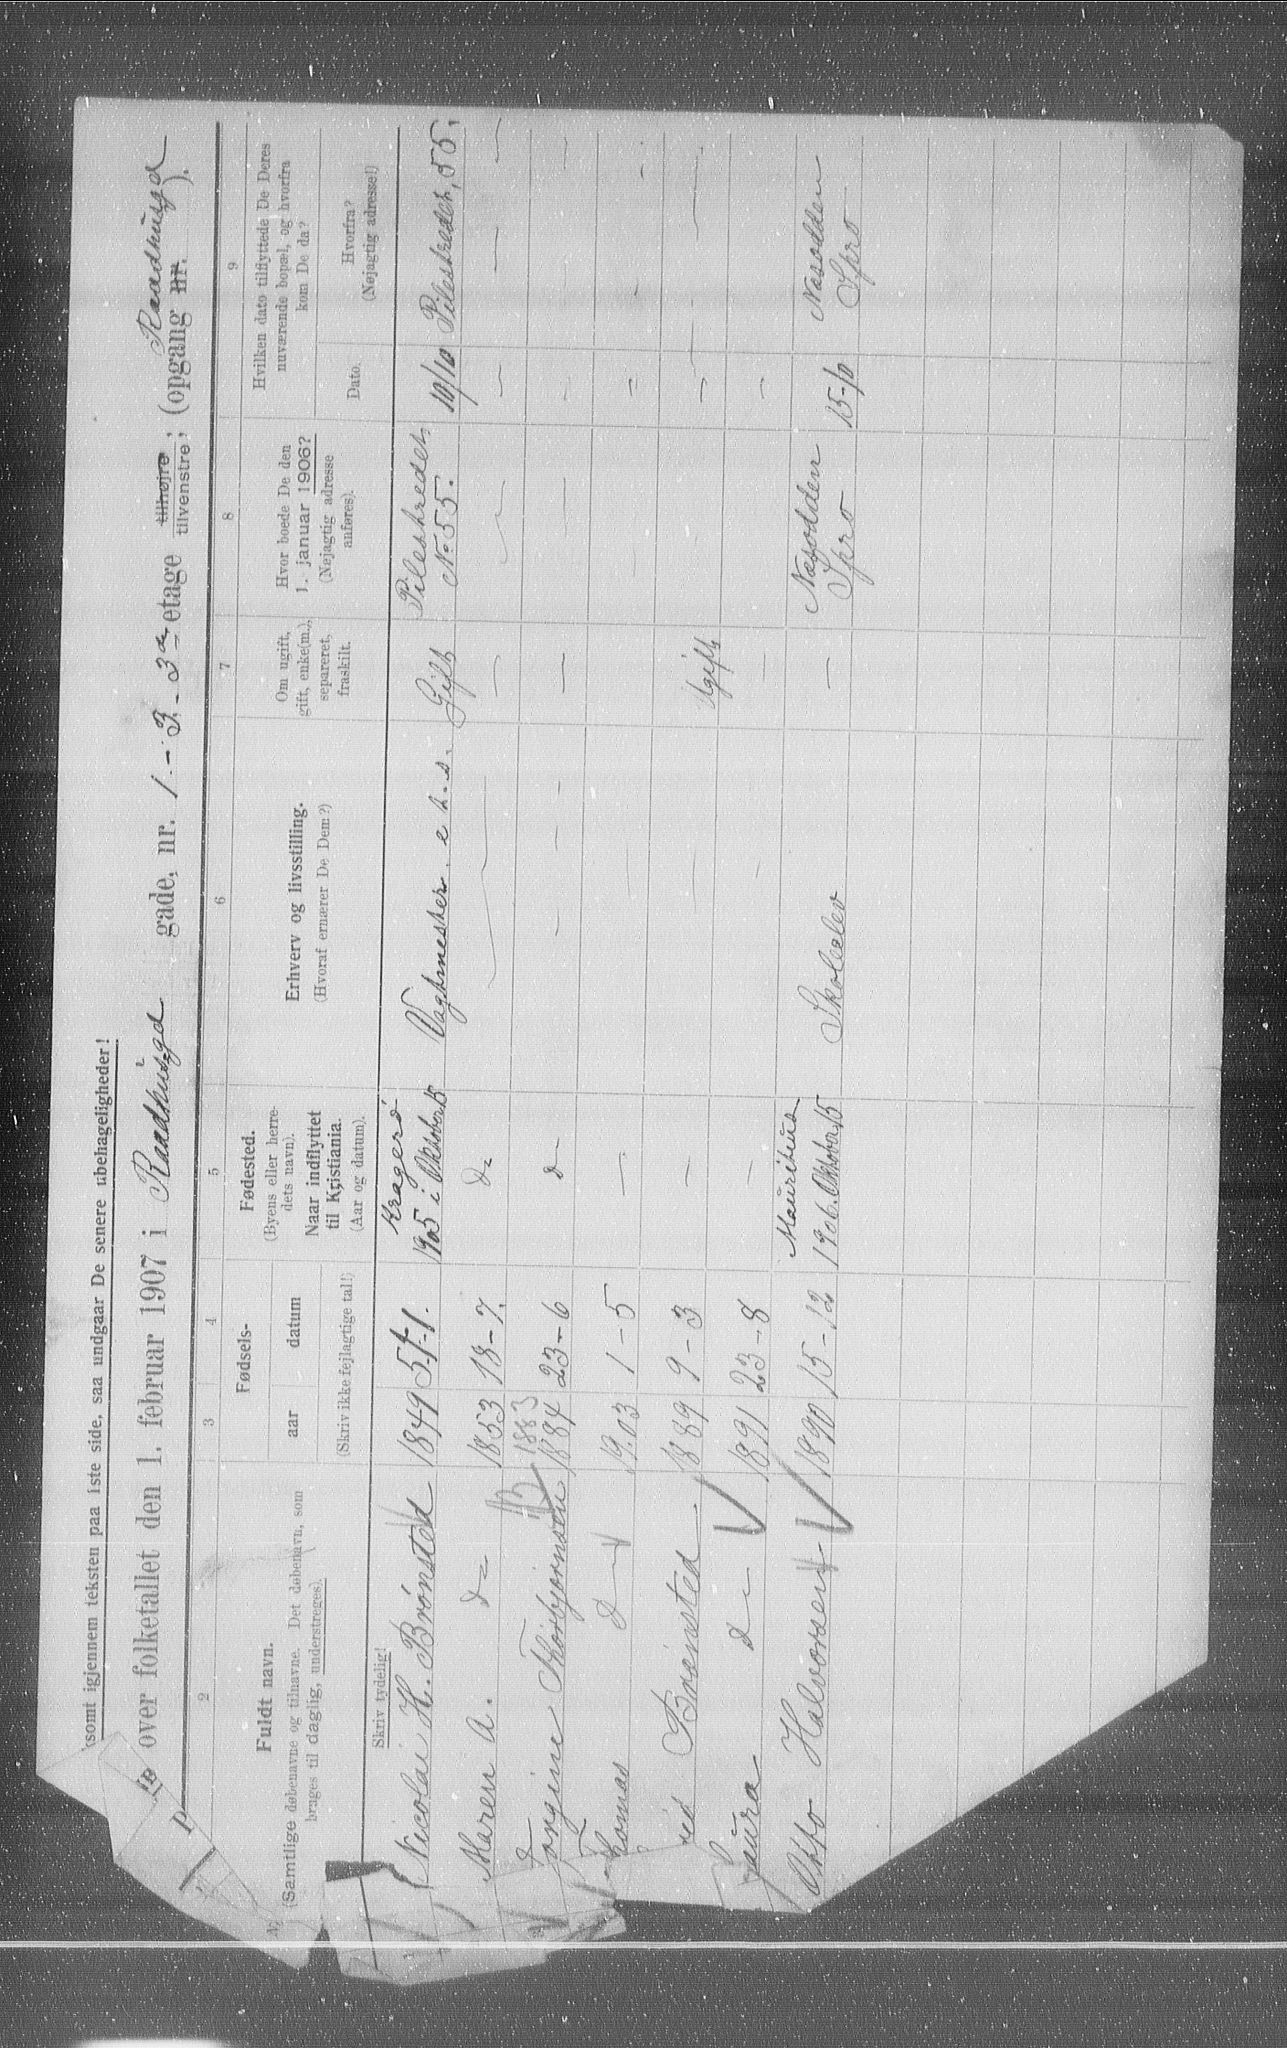 (somt igjennem teksten paa 1ste side, saa undgaar De senere ubehageligheder!
over folketallet den 1. februar 1907 i Raadhusgd gade, nr. 1 - 3 - 3die etage tilhøjre, tilvenstre; (opgang nr. Raadhusgd ).
2 3 4 5 6 7 8 9
Fuldt navn.
(Samtlige døbenavne og tilnavne. Det døbenavn, som
bruges til daglig, understreges).
Skriv tydelig!
Fødsels-
aar datum
(Skriv ikke fejlagtige tal!)
Fødested.
(Byens eller herre-
dets navn).
Naar indflyttet
til Kristiania.
(Aar og datum).
Erhverv og livsstilling.
(Hvoraf ernærer De Dem?)
Om ugift,
gift, enke(m.),
separeret,
fraskilt.
Hvor boede De den
1. januar 1906?
(Nøjagtig adresse
anføres).
Hvilken dato tilflyttede De Deres
nuværende bopæl, og hvorfra
kom De da?
Dato.
Hvorfra?
(Nøjagtig adresse!)
Nicolai H. Brønsted 1849 5-1. Kragerø 1905 i Oktober 15 Vagtmester e h. d. Gift Pilestredet No 55. 10/10 Pilestredet, 55,
Maren A. d= 1853 18-7. d= — — — —
1883
Jongine Thorbjørnsen 1884 23-6 d — — — — —
Thomas d — 1903 1-5 — — — — —
Brønsted 1889 9-3 — — Ugift — —
Laura d — 1891 23-8 — — — —
Otto Halvorsen 1890 15-12 Mauritius 1906. Oktober 15 Skoleelev — Næsodden Spro 15-10 Næsodden Spro